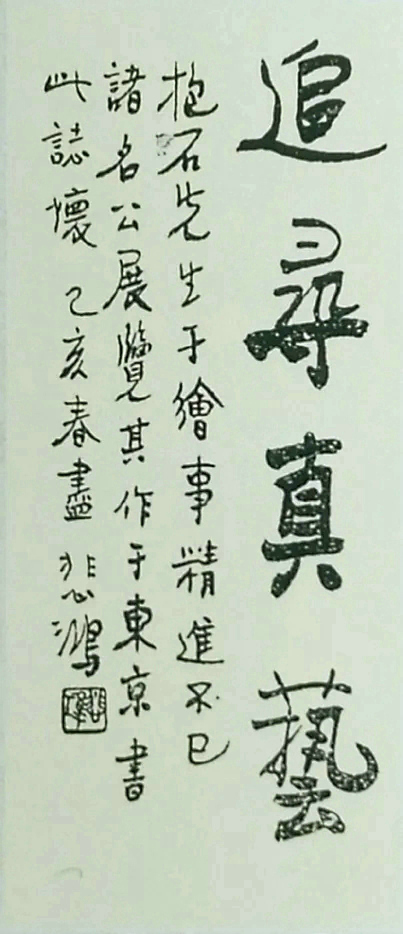 追尋真藝
抱石先生于繪事精進不已
諸名公展覽其作于東京書
此誌懷 乙亥春盡 悲鴻